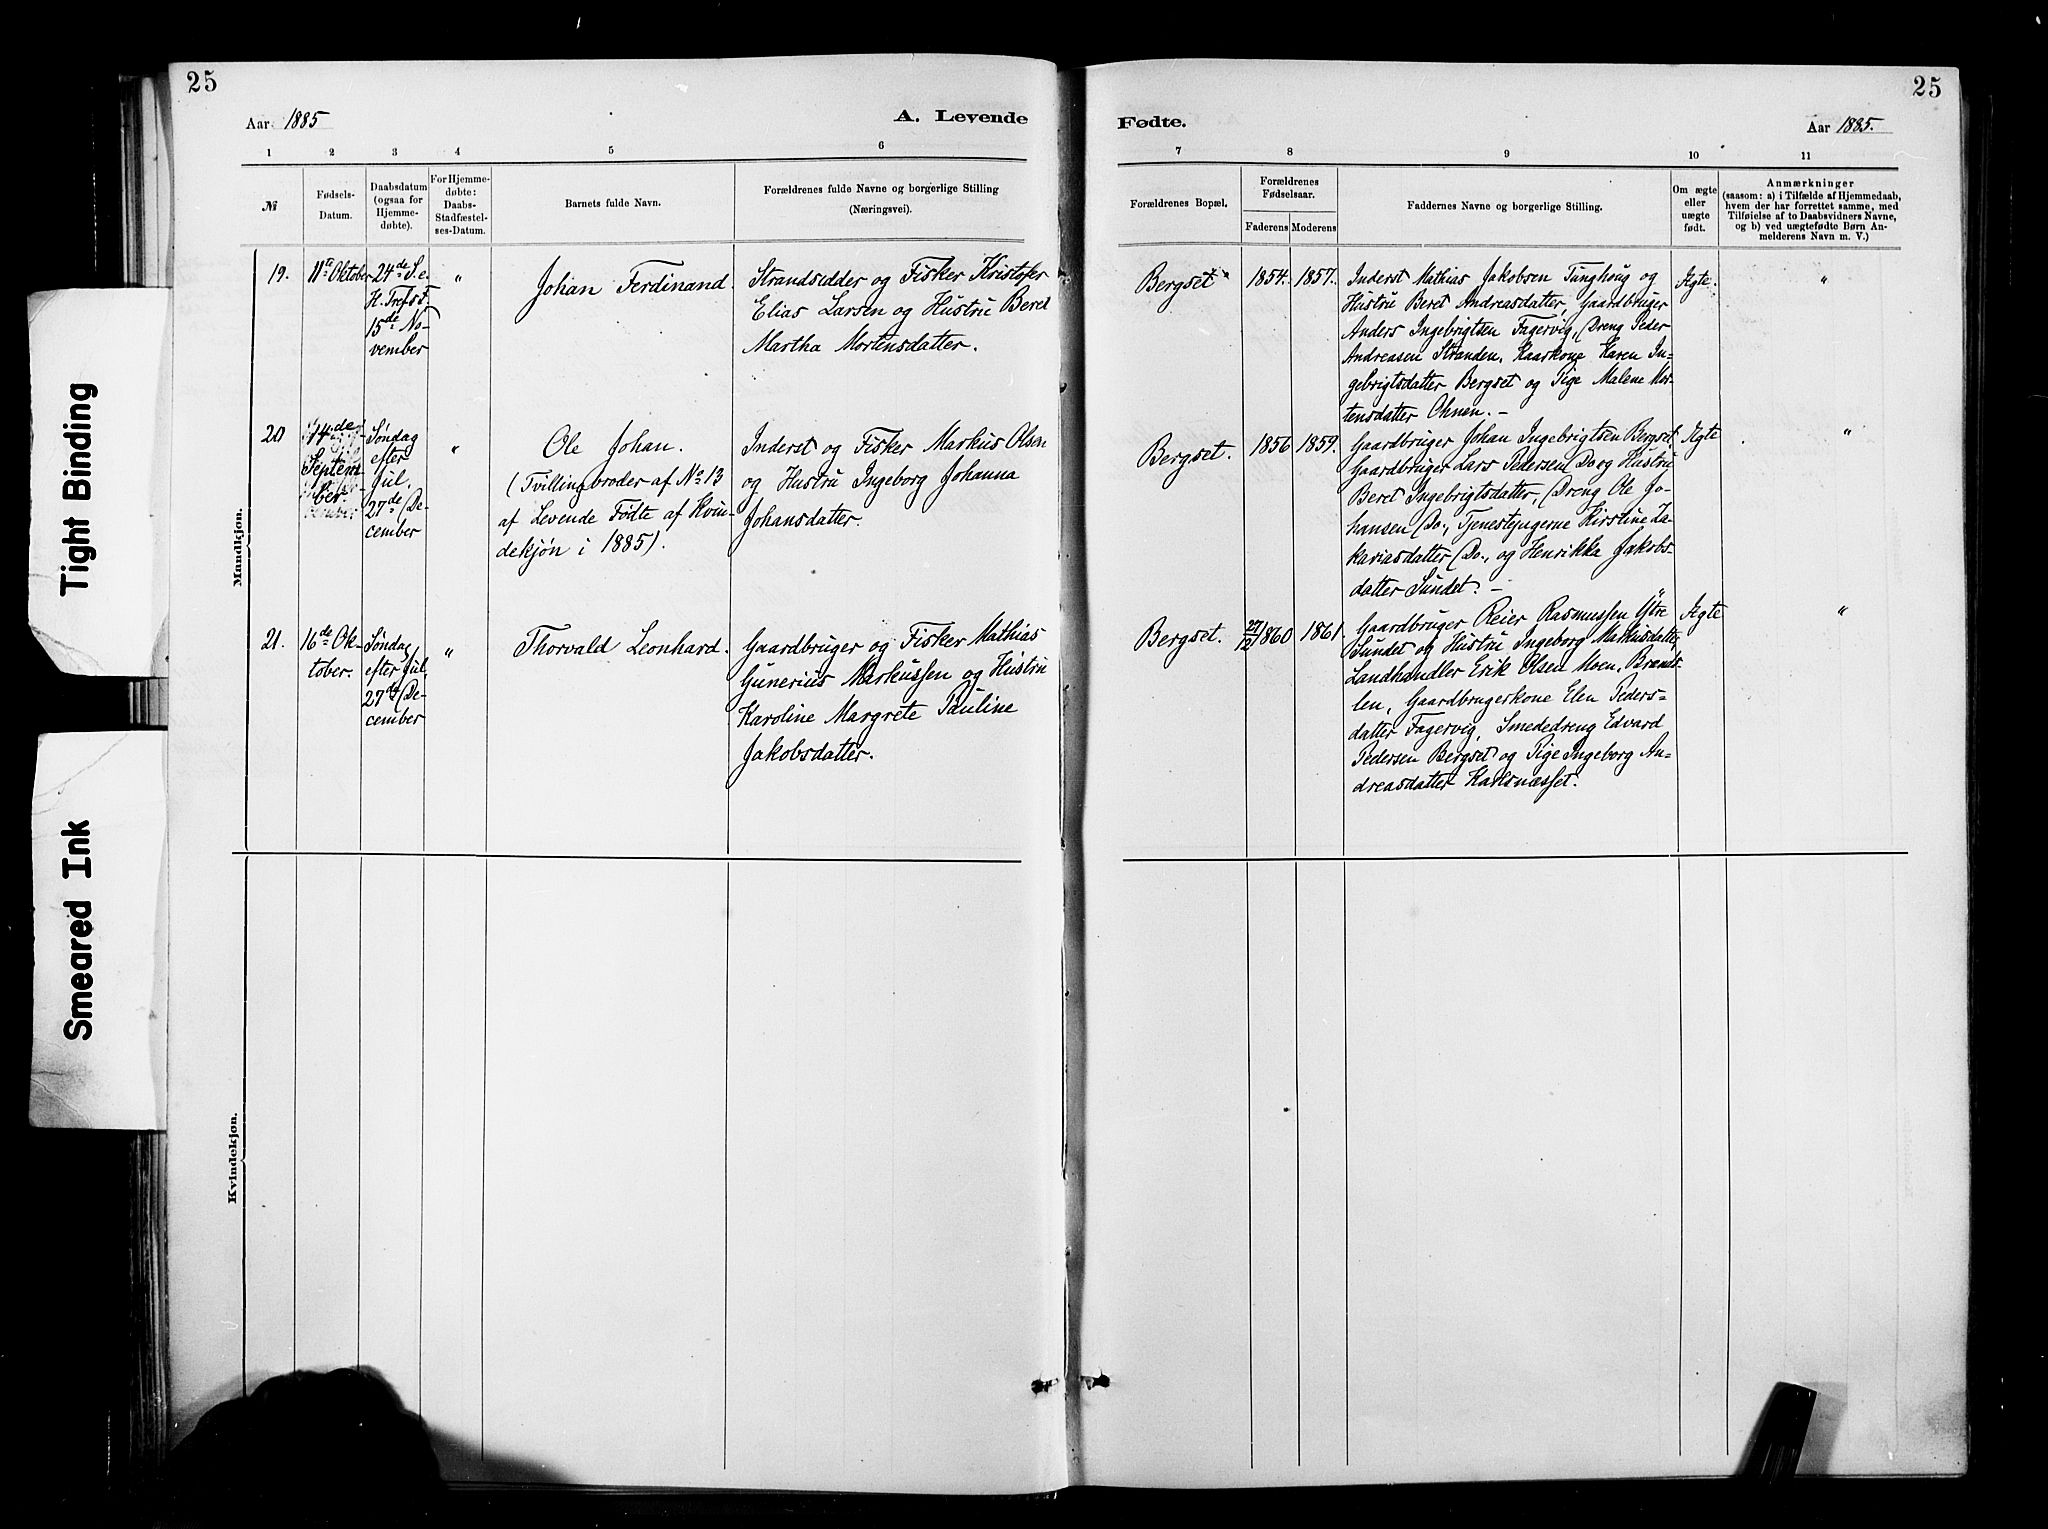 Tight Binding
Smeared Ink
25
Aar 1885
A. Levende
1 2 3 4 5 6
№
Fødsels-
Datum.
Daabsdatum
(ogsaa for
Hjemme-
døbte).
For Hjemme-
døbte:
Daabs-
Stadfæstel-
ses-Datum.
Barnets fulde Navn.
Forældrenes fulde Navne og borgerlige Stilling
(Næringsvei).
Mandkjøn.
19.
11te Oktober
24de S. e.
H. Tref. F.
15de No-
vember
"
Johan Ferdinand.
Strandsidder og Fisker Kristofer
Elias Larsen og Hustru Beret
Martha Mortensdatter.
20
14de
Septem
ber.
Søndag
efter
Jul.
27de De-
cember
"
Ole Johan.
(Tvillingbroder af No 13
af Levende Fødte af Kvin-
dekjøn i 1885).
Inderst og Fisker Markus Olsen
og Hustru Ingeborg Johanna
Johansdatter.
21.
16de Ok-
tober.
Søndag
efter Jul,
27de De-
cember
"
Thorvald Leonhard.
Gaardbruger og Fisker Mathias
Gunerius Markussen og Hustru
Karoline Margrete Pauline
Jakobsdatter.
Kvindekjøn.
25
Fødte.
Aar 1885.
7 8 9 10 11
Forældrenes Bopæl.
Forældrenes
Fødselsaar.
Faderens Moderens
Faddernes Navne og borgerlige Stilling.
Om ægte
eller
uægte
født.
Anmærkninger
(saasom: a) i Tilfælde af Hjemmedaab,
hvem der har forrettet samme, med
Tilføielse af to Daabsvidners Navne,
og b) ved uægtefødte Børn An-
melderens Navn m. V.)
Bergset
1854. 1857.
Inderst Mathias Jakobsen Tunghoug og
Hustru Beret Andreasdatter, Gaardbruger
Anders Ingebrigtsen Fagervig, Dreng Peder
Andreasen Stranden, Kaarkone Karen In-
gebrigtsdatter Bergset og Pige Malene Mor-
tensdatter
Ægte.
"
Bergset.
1856 1859.
Gaardbruger Johan Ingebrigtsen Bergset,
Gaardbruger Lars Pedersen Do og Hustru
Beret Ingebrigtsdatter, Dreng Ole Jo-
hansen Do., Tjenestepigerne Kirstine Za-
kariasdatter Do., og Henrikka Jakobs-
datter Sundet. –
Ægte
"
Bergset.
27/12 1860 1861
Gaardbruger Reier Rasmussen Ytre
Sundet og Hustru Ingeborg Mathisdatter,
Landhandler Erik Olsen Moen, Brænds-
len, Gaardbrugerkone Elen Peders-
datter Fagervig, Smededreng Edvard
Pedersen Bergset og Pige Ingeborg An-
dreasdatter Karlsnæsset.
Ægte
"